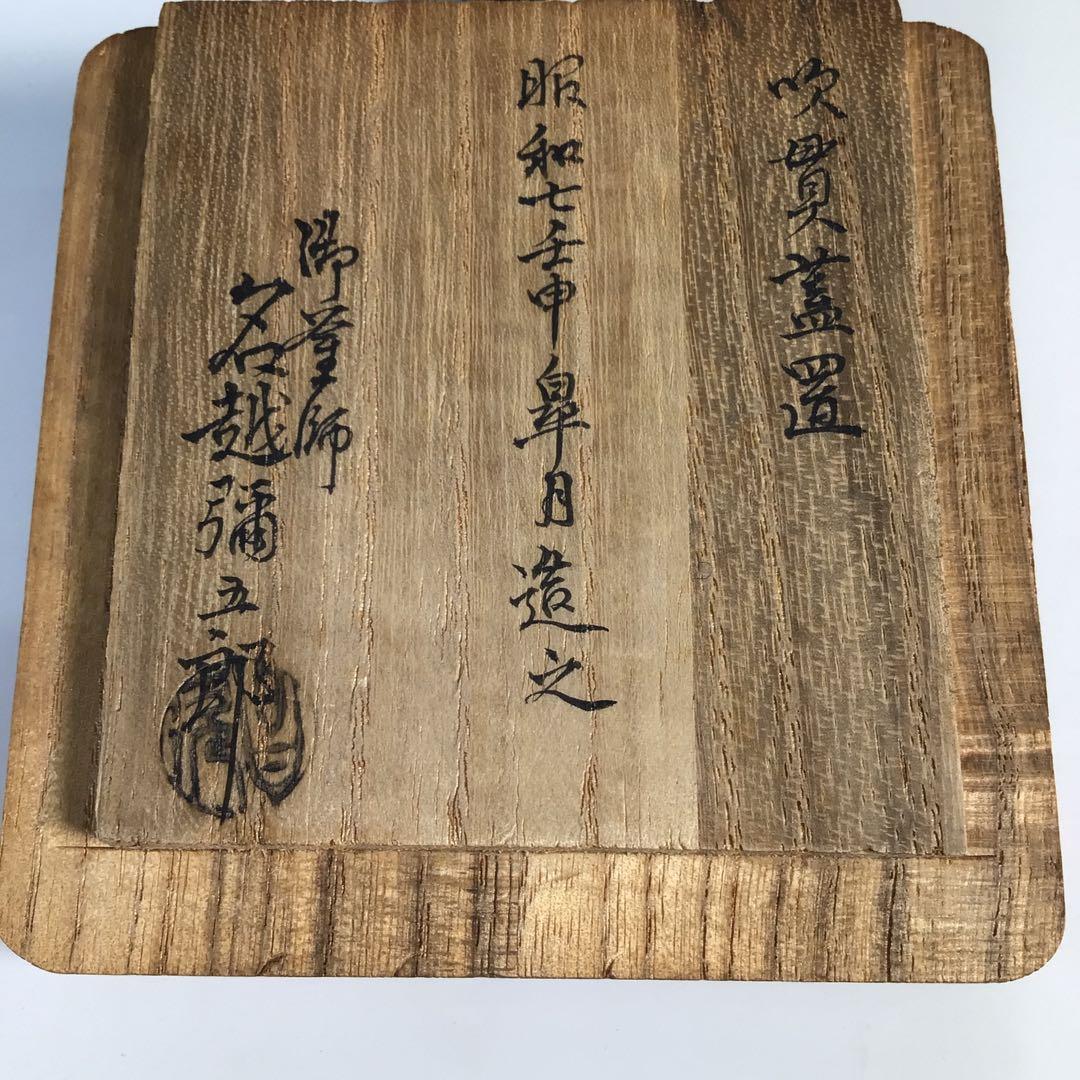 吹貫蓋置
昭和七壬申皐月造之
御釜師
名越彌五郎